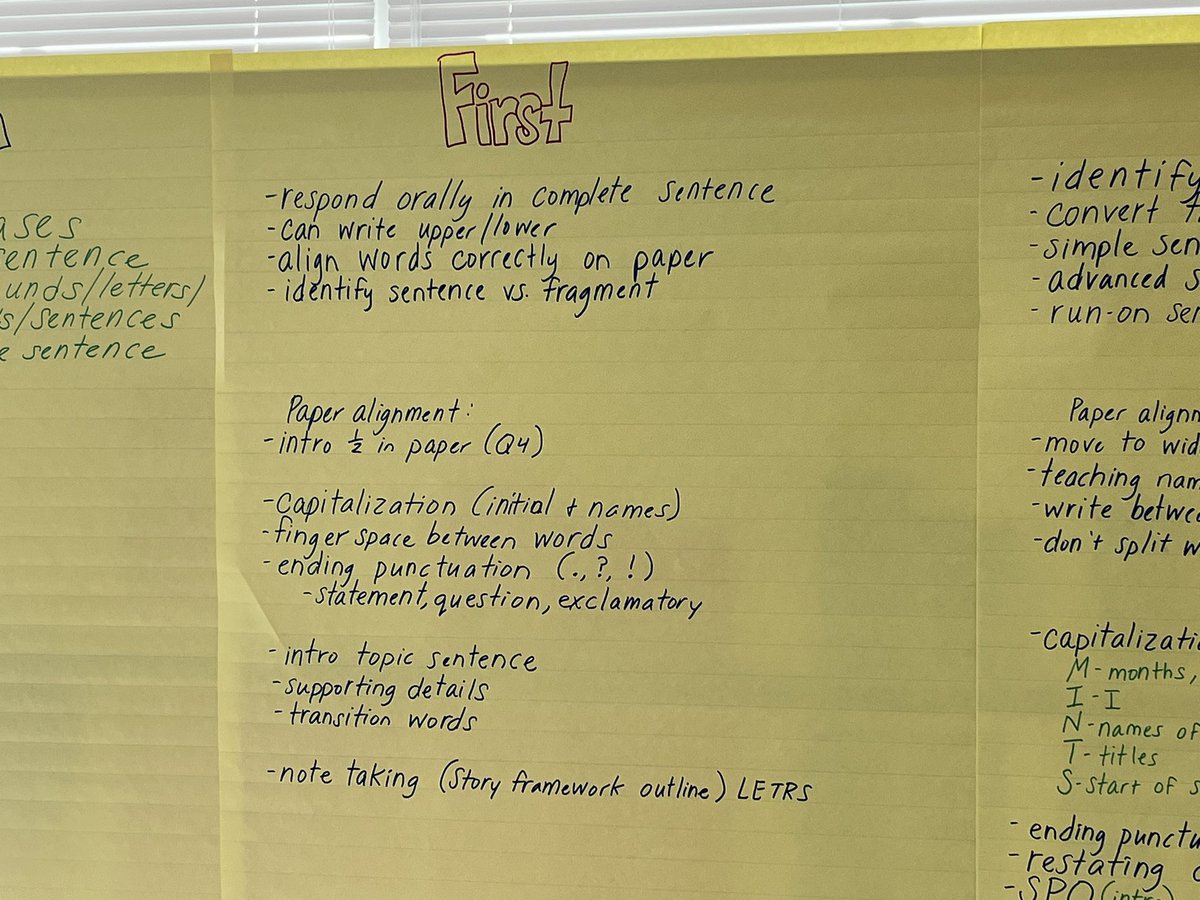 First
-respond orally in complete sentence
-can write upper/lower
-align words correctly on paper
-identify sentence vs. fragment
Paper alignment:
-intro ½ in paper (Q4)
-Capitalization (initial + names)
-finger space between words
-ending punctuation (., ?, !)
-statement, question, exclamatory
-intro topic sentence
-supporting details
-transition words
-note taking (Story framework outline) LETRS
sentence
/letters/
/sentences
sentence
-identify
-convert
-simple
-advanced
-run-on
Paper
-move to
-teaching
-write
-don't split
-
M-months,
I-I
N-names of
T-titles
S-start of
-ending
-restating
-SPO